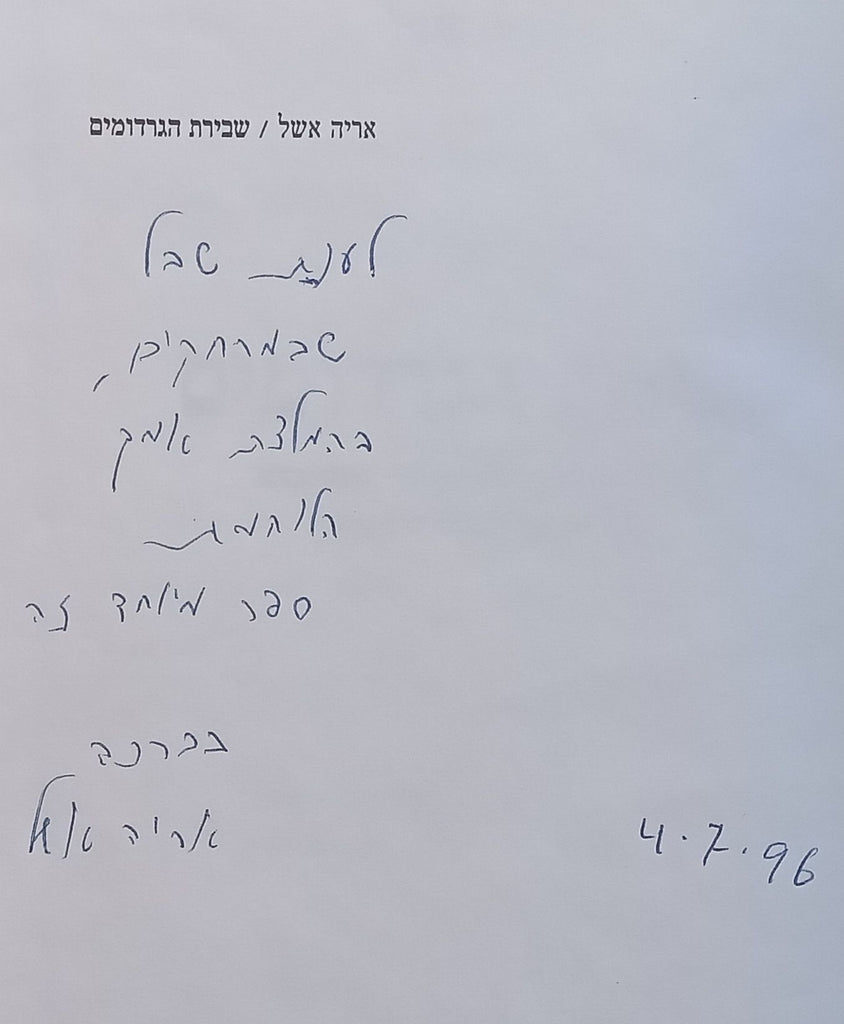 אריה אשל / שבירת הגרדומים
לענת שבל
שבמרחקים,
בהמלצת אמך
הלוחמת
ספר מיוחד זה
בברכה
אריה אשל
4.7.96